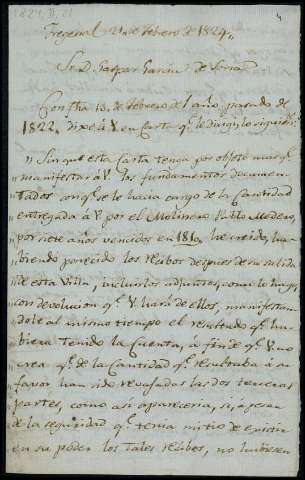 1824, II, 21
4
Fregenal 21 de Febrero de 1824.
Sr. D. Gaspar Garcia de
Con fha 13. de Febrero del año pasado de
1822. dixe à V. en Carta qe. le dirigi lo siguiente:
" Sin qe. esta carta tenga por objeto mas qe.
" manifestar à V. los fundamentos documen-
" tados con qe. se le hacia cargo de la Cantidad
" entregada à V. por el Molinero Pablo Medero,
" por siete años vencidos en 1810, he creido, ha-
" biendo parecido los recibos despues de su salida
" de esta Villa, incluirlos adjuntos, como lo hago,
" con devolucion qe. V. hará de ellos, manifestan
" dole al mismo tiempo el resultado qe. hu-
" biera tenido la Cuenta, à fin de qe. V. no
" crea qe. de la Cantidad qe. resultaba à su
" favor han sido revajadas las dos terceras
" partes, como asi apareceria, si, à pesar
" de la seguridad qe. tenia mi tio de existir
" en su poder los tales recibos, no hubiesen